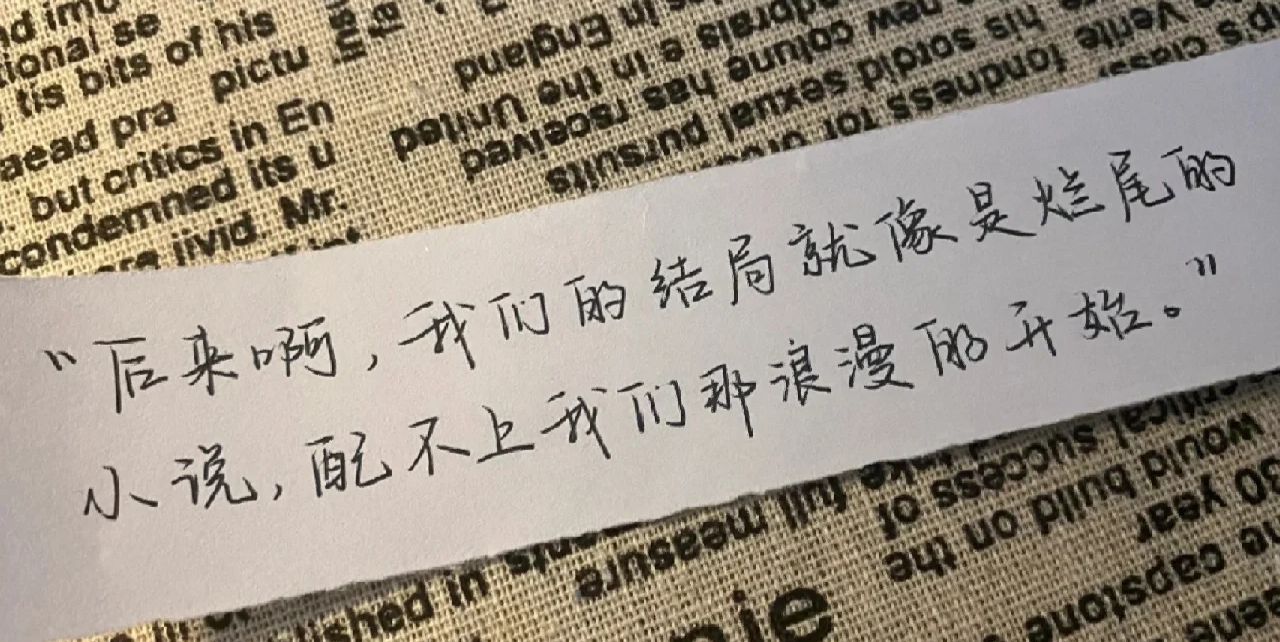 nd imb
tional se
tis bits of his
aead pra pictu
but critics in En
condemned its u
jivid. Mr.
in England
e in the United
new colune has rsceived
his soroid sexual pursuits
Verite fondness for
"后来啊，我们的结局就像是烂尾的
小说，配不上我们那浪漫的开始。"
full measure
critical success of
would build on the
30 year
capstone
ished in
nie